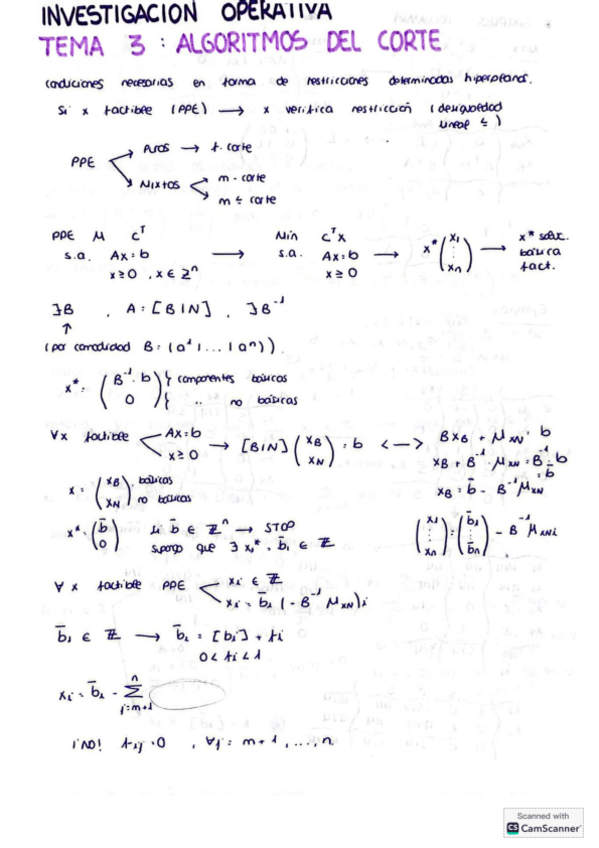 INVESTIGACION OPERATIVA
TEMA 3 : ALGORITMOS DEL CORTE
condiciones necesarias en forma de restricciones determinadas hiperplanos.
Si x factible (PPE) → x verifica restricción (desigualdad
lineal ≤ )
PPE
Puros → f. corte
Mixtos
m - corte
m ≤ corte
PPE M cᵀ → Min cᵀx
s.a. Ax = b s.a. Ax = b → x* (x₁ ⋮ xn) → x* soluc. básica fact.
x ≥ 0, x ∈ Zⁿ x ≥ 0
∃B , A = [B|N] , ∃B⁻¹
↑
(por comodidad B = (a¹ | ... | aⁿ)).
x* = (B⁻¹·b 0) } componentes básicas
} " no básicas
∀x factible Ax=b x≥0 → [B|N] (xB xN) = b <-> BxB + MxN · b
xB + B⁻¹ MxN = B⁻¹ b
= b̄
xB = b̄ - B⁻¹MxN
x = (xB xN) básicas no básicas
x* = (b̄ 0) si b̄ ∈ Zⁿ → STOP
supongo que ∃ xi*, b̄i ∈ Z
(x₁ ⋮ xn) = (b̄₁ ⋮ b̄n) - B⁻¹ MxNi
∀ x factible PPE
xi ∈ Z
xi = b̄i (- B⁻¹ MxN)i
b̄i ∈ Z → b̄i = [bi] + fi
0 < fi < 1
xi = b̄i - Σ n j=m+1
¡NO! fij = 0 , ∀j = m+1, ..., n
Scanned with
CS CamScanner